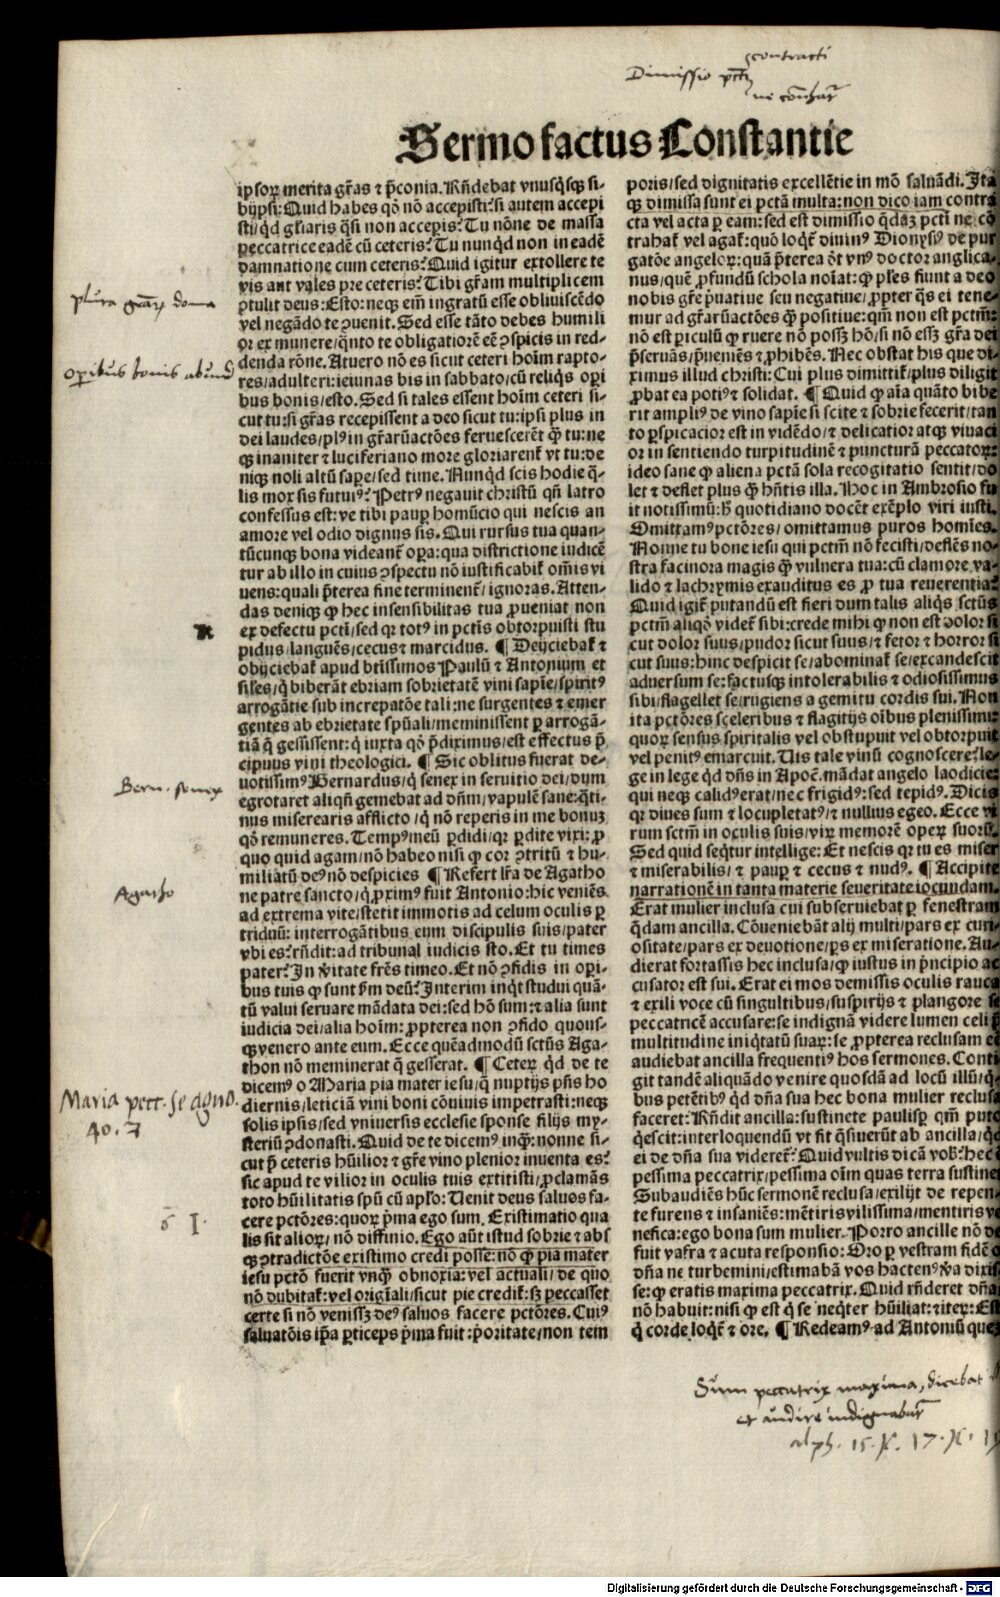 contracti
Dimissio pctī
ne cōtrahat̄
Sermo factus Constantie
ipsoꝝ merita gr̄as ⁊ p̄conia. Rn̄debat vnusq̄sqꝫ si-
bijpsi: Quid habes qḋ nō accepisti: si autem accepi
sti/qd gl̄iaris q̄si non acceꝑis: Tu nōne de massa
peccatrice eadē cū ceteris: Tu nunqd non in eadē
damnatione cum ceteris: Quid igitur extollere te
vis aut vales pre ceteris: Tibi gr̄am multiplicem
ꝯtulit deus: Esto: neqꝫ eīm ingratū esse obliuiscēdo
vel negādo te ꝯuenit. Sed esse tāto debes humili
or ex munere/q̄nto te obligatiorē eē ꝯspicis in red-
denda rōne. At vero nō es sicut ceteri hoīm rapto-
res/adulteri: ieiunas bis in sabbato/cū reliqs oꝑi
bus bonis/esto. Sed si tales essent hoīm ceteri si-
cut tu: si gr̄as recepissent a deo sicut tu: ipsi plus in
dei laudes/plꝰ in gr̄aruactōes feruescerēt q̄ꝫ tu: ne
qꝫ inaniter ⁊ luciferiano more gloriarent̄ vt tu: de
niqꝫ noli altū saꝑe/sed time. Nunqd scis hodie q̄-
lis mox sis futurꝰ: Petrꝰ negauit christū qn̄ latro
confessus est: ve tibi pauꝑ homūcio qui nescis an
amore vel odio dignus sis. Qui rursus tua quan-
tūcunqꝫ bona videant̄ oꝑa: qua districtione iudicē
tur ab illo in cuius ꝯspectu nō iustificabit̄ om̄is vi
uens: quali p̄terea fine terminent̄/ignoras. Atten-
das deniqꝫ ꝙ hec insensibilitas tua ꝓueniat non
ex defectu pctī/sed qꝛ totꝰ in pctīs obtorpuisti stu
pidus/languēs/cecus ⁊ marcidus. ¶ Deijciebat̄ ⁊
obijciebat̄ apud btīssimos Paulū ⁊ Antonium et
sil̄es/q̇ biberāt ebriam sobrietatē vini sapīe/spiritꝰ
arrogātie sub increpatōe tali: ne surgentes ⁊ emer
gentes ab ebrietate spūali/meminissent ꝑ arrogā-
tiā q̄ gessissent: q̇ iuxta qḋ p̄diximus/est effectus p̄
cipuus vini theologici. ¶ Sic oblitus fuerat de-
uotissimꝰ Bernardus/q̇ senex in seruitio dei/dum
egrotaret aliqn̄ gemebat ad dn̄m/vapulē sane: q̄ti-
nus miserearis afflicto/q̇ nō reperis in me bonuꝫ
qḋ remuneres. Tempꝰ meū ꝑdidi/qꝛ ꝑdite vixi: ꝓ
quo quid agam/nō habeo nisi ꝙ cor ꝯtritū ⁊ hu-
miliatū deꝰ nō despicies ¶ Refert lr̄a de Agatho
ne patre sancto/q̇ ꝓximꝰ fuit Antonio: hic veniēs
ad extrema vite/stetit immotis ad celum oculis ꝑ
triduū: interrogātibus eum discipulis suis/pater
vbi es: rn̄dit: ad tribunal iudicis sto. Et tu times
pater: In v̄itate frēs timeo. Et nō ꝯfidis in oꝑi-
bus tuis ꝙ sunt km̄ deū: Interim inqt studui quā-
tū valui seruare mādata dei: sed hō sum: ⁊ alia sunt
iudicia dei/alia hoīm: ꝓpterea non ꝯfido quous-
qꝫ venero ante eum. Ecce quēadmodū sctūs Aga-
thon nō meminerat q̄ gesserat. ¶ Ceteꝝ qd de te
dicemꝰ o Maria pia mater iesu/q̄ nuptijs pn̄tis ho
diernis/leticiā vini boni cōuiuis impetrasti: neqꝫ
solis ipsis/sed vniuersis ecclesie sponse filijs my-
steriū ꝯdonasti. Quid de te dicemꝰ inqꝫ: nonne si-
cut p̄ ceteris hūilior ⁊ gr̄e vino plenior inuenta es:
sic apud te vilior in oculis tuis extitisti/ꝓclamās
toto hūilitatis spū cū apl̄o: Uenit deus saluos fa-
cere pctōres: quoꝝ p̄ma ego sum. Existimatio qua
lis sit alioꝝ/nō diffinio. Ego aūt istud sobrie ⁊ abs
qꝫ ꝯtradictōe existimo credi posse: nō ꝙ pia mater
iesu pctō fuerit vnqꝫ obnoxia: vel actuali/de quo
nō dubitat̄: vel origīali/sicut pie credit̄: sꝫ peccasset
certe si nō venissꝫ deꝰ saluos facere pctōres. Cuiꝰ
saluatōis ip̄a ꝑticeps p̄ma fuit: p̄oritate/non tem
poris/sed dignitatis excellētie in mō saluādi. Ita
qꝫ dimissa sunt ei pctā multa: non dico iam contra
cta vel acta ꝑ eam: sed est dimissio q̄daꝫ pctī ne cō
trahat̄ vel agat̄: quō loqt̄ diuinꝰ Dionysꝰ de pur
gatōe angeloꝝ: quā p̄terea ōt vnꝰ doctor anglica-
nus/quē ꝓfundū schola noīat: ꝙ pl̄es fiunt a deo
nobis gr̄e p̄uatiue seu negatiue/ꝓpter q̄s ei tene-
mur ad gr̄aruactōes q̄ꝫ positiue: qm̄ non est pctm̄:
nō est ꝑiculū ꝙ ruere nō possꝫ hō/si nō essꝫ gr̄a dei
p̄seruās/p̄ueniēs ⁊ ꝓhibēs. Nec obstat his que di-
ximus illud christi: Cui plus dimittit̄/plus diligit
ꝓbat ea potiꝰ ⁊ solidat. ¶ Quid ꝙ aīa quāto bibe
rit ampliꝰ de vino sapīe si scite ⁊ sobrie fecerit/tan
to ꝑspicacior est in vidēdo/⁊ delicatior atqꝫ viuaci
or in sentiendo turpitudinē ⁊ puncturā peccatoꝝ:
ideo sane ꝙ aliena pctā sola recogitatio sentit/do
let ⁊ deflet plus q̄ꝫ hn̄tis illa. Hoc in Ambrosio fu
it notissimū: h̄ quotidiano docēt exēplo viri iusti.
Omittamꝰ pctōres/omittamus puros homīes.
Nonne tu bone iesu qui pctm̄ nō fecisti/defles no-
stra facinora magis q̄ꝫ vulnera tua: cū clamore va-
lido ⁊ lachrymis exauditus es ꝓ tua reuerentia:
Quid igit̄ putandū est fieri dum talis aliqs sctūs
pctm̄ aliqḋ videt̄ sibi: crede mihi ꝙ non est dolor si
cut dolor suus/pudor sicut suus/⁊ fetor ⁊ horror si
cut suus: hinc despicit se/abominat̄ se/excandescit
aduersum se: factusqꝫ intolerabilis ⁊ odiosissimus
sibi/flagellet se/rugiens a gemitu cordis sui. Non
ita pctōres sceleribus ⁊ flagitijs oībus plenissimi:
quoꝝ sensus spiritalis vel obstupuit vel obtorpuit
vel penitꝰ emarcuit. Uis tale vinū cognoscere: le-
ge in lege qd dn̄s in Apoc̄. mādat angelo laodicie:
qui neqꝫ calidꝰ erat/nec frigidꝰ: sed tepidꝰ. Dicis
qꝛ diues sum ⁊ locupletatꝰ/⁊ nullius egeo. Ecce vi
rum sctm̄ in oculis suis/viꝝ memorē opeꝝ suoꝝ.
Sed quid seqt̄ur intellige: Et nescis qꝛ tu es miser
⁊ miserabilis/⁊ pauꝑ ⁊ cecus ⁊ nudꝰ. ¶ Accipite
narrationē in tanta materie seueritate iocundam.
Erat mulier inclusa cui subseruiebat ꝑ fenestram
q̄dam ancilla. Cōueniebāt alij multi/pars ex curi-
ositate/pars ex deuotione/ꝑs ex miseratione. Au-
dierat fortassis hec inclusa/ꝙ iustus in p̄ncipio ac
cusator est sui. Erat ei mos demissis oculis rauca
⁊ exili voce cū singultibus/suspirijs ⁊ plangore se
peccatricē accusare: se indignā videre lumen celi p̄
multitudine iniqtatū suaꝝ: se ꝓpterea reclusam eē
audiebat ancilla frequentiꝰ hos sermones. Conti
git tandē aliquādo venire quosdā ad locū illū/q̇-
bus petētibꝰ qd dn̄a sua hec bona mulier reclusa
faceret: Rn̄dit ancilla: sustinete paulisꝑ qm̄ puto
q̇escit: interloquendū vt fit q̄siuerūt ab ancilla/qd
ei de dn̄a sua videret̄: Quid vultis dicā vob̄: hec ē
pessima peccatrix/pessima oīm quas terra sustinet
Subaudiēs hūc sermonē reclusa/exilijt de repen-
te furens ⁊ insaniēs: mētiris vilissima/mentiris ve
nefica: ego bona sum mulier. Porro ancille nō de
fuit vafra ⁊ acuta responsio: Oro ꝑ vestram fidē o
dn̄a ne turbemini/estimabā vos hactenꝰ v̄a dixis
se: ꝙ eratis maxima peccatrix. Quid rn̄deret dn̄a
nō habuit: nisi ꝙ est q̇ se neqter hūiliat: ⁊ iteꝝ: Est
q̇ corde loqt̄ ⁊ ore. ¶ Redeamꝰ ad Antoniū queꝫ
plura grāꝝ dona
operibus bonis abund
K
Bern. senex
Agatho
Maria pecc. se agno.
40. 7
ō I.
Sum peccatrix maxima, dicebat
et audire indignabat̄
alph. 15. K. 17. K. 19
Digitalisierung gefördert durch die Deutsche Forschungsgemeinschaft - DFG